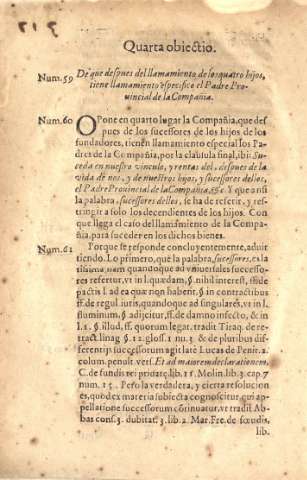 Quarta obiectio.
Num.59 De que despues del llamamiento de los quatro hijos,
tiene llamamiento especifico el Padre Pro-
uincial de la Compañia.
Num.60 OPone en quarto lugar la Compañia, que des
pues de los sucessores de los hijos de los
fundadores, tienen llamamiento especial los Pa
dres de la Compañia, por la clausula final, ibi: Su
ceda en nuestro vinculo, y rentas del, despues de la
vida de nos, y de nuestros hijos, y sucessores dellos,
el Padre Prouincial de la Compañia, &c. Y que ansi
la palabra, sucessores dellos, se ha de referir, y res-
tringir a solo los decendientes de los hijos. Con
que llega el caso del llamamiento de la Compa-
ñia, para suceder en los dichos bienes.
Num.61 Porque se responde concluyentemente, aduir
tiendo. Lo primero, que la palabra, sucessores, es la
tissima, nam quandoque ad vniuersales successo-
res refertur, vt in l. quædam, §. nihil interest, ff. de
pactis l. ad ea quæ non haberit, §. in contractibus
ff. de regul. iuris, quandoque ad singulares, vt in l.
fluminum, §. adijcitur, ff. de damno infecto, & in
l. 1. §. illud, ff. quorum legat. tradit Tiraq. de re-
tract. linag. §. 12. gloss. 1. nu. 3. & de pluribus dif-
ferentijs successorum agit latè Lucas de Penir. a.
colum. penult. vers. Et ad maiorem declarationem,
C. de fundis rei priuatę, lib. 11. Molin. lib. 3. cap. 7
num. 15. Pero la verdadera, y cierta resolucion
es, quod ex materia subiecta cognoscitur, qui ap-
pellatione successorum cõtinuatur, vt tradit Ab-
bas cons. 3. dubitat. 3. lib. 2. Mar. Fre. de fœudis,
lib.